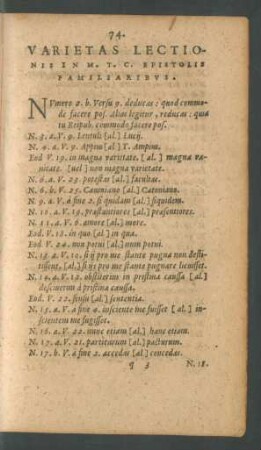 74.
VARIETAS LECTIO-
NIS IN M. T. C. EPISTOLIS
FAMILIARIBUS.
NVmero 2. b. Versu 9. deducas: quod commo-
de facere pos. aliàs legitur, reducas: quod
tu Reipub. commodo facere pos.
N. 3. a. V. 9. Lentuli [al.] Lucij.
N. 4. a. V. 9. Appius [al.] T. Ampius.
Eod V. 19. in magna varietate. [al.] magna va-
nitate. [uel] non magna varietate.
N. 6. a. V. 23. potestas [al.] facultas.
N. 6. b. V. 25. Caniniano [al.] Catoniano.
N. 9. a. V. à fine 2. si quidam [al.] siquidem.
N. 11. a. V. 19. præstantiores [al.] præsentiores.
N. 11. a. V. 6. amore [al.] more.
Eod. V. 18. in quo [al.] in qua
Eod. V. 24. non potui [al.] num potui.
N. 13. a. V. 10. si ij pro me stante pugna non desti-
tissent, [al.] si ij pro me stante pugnare licuisset.
N. 19. a. V. 19. obstiterim in pristina caussa [al.]
desciuerim à pristina caussa.
Eod. V. 22. sensu [al.] sententia.
N. 15. a. V. à fine 4. insciente me fuisset [al.] in-
scientem me fugisset.
N. 16. a. V. 22. nunc etiam [al.] hanc etiam.
N. 17. a. V. 21. partiturum [al.] pacturum.
N. 17. b. V. à fine 2. accedas [al.] concedas.
N. 18.